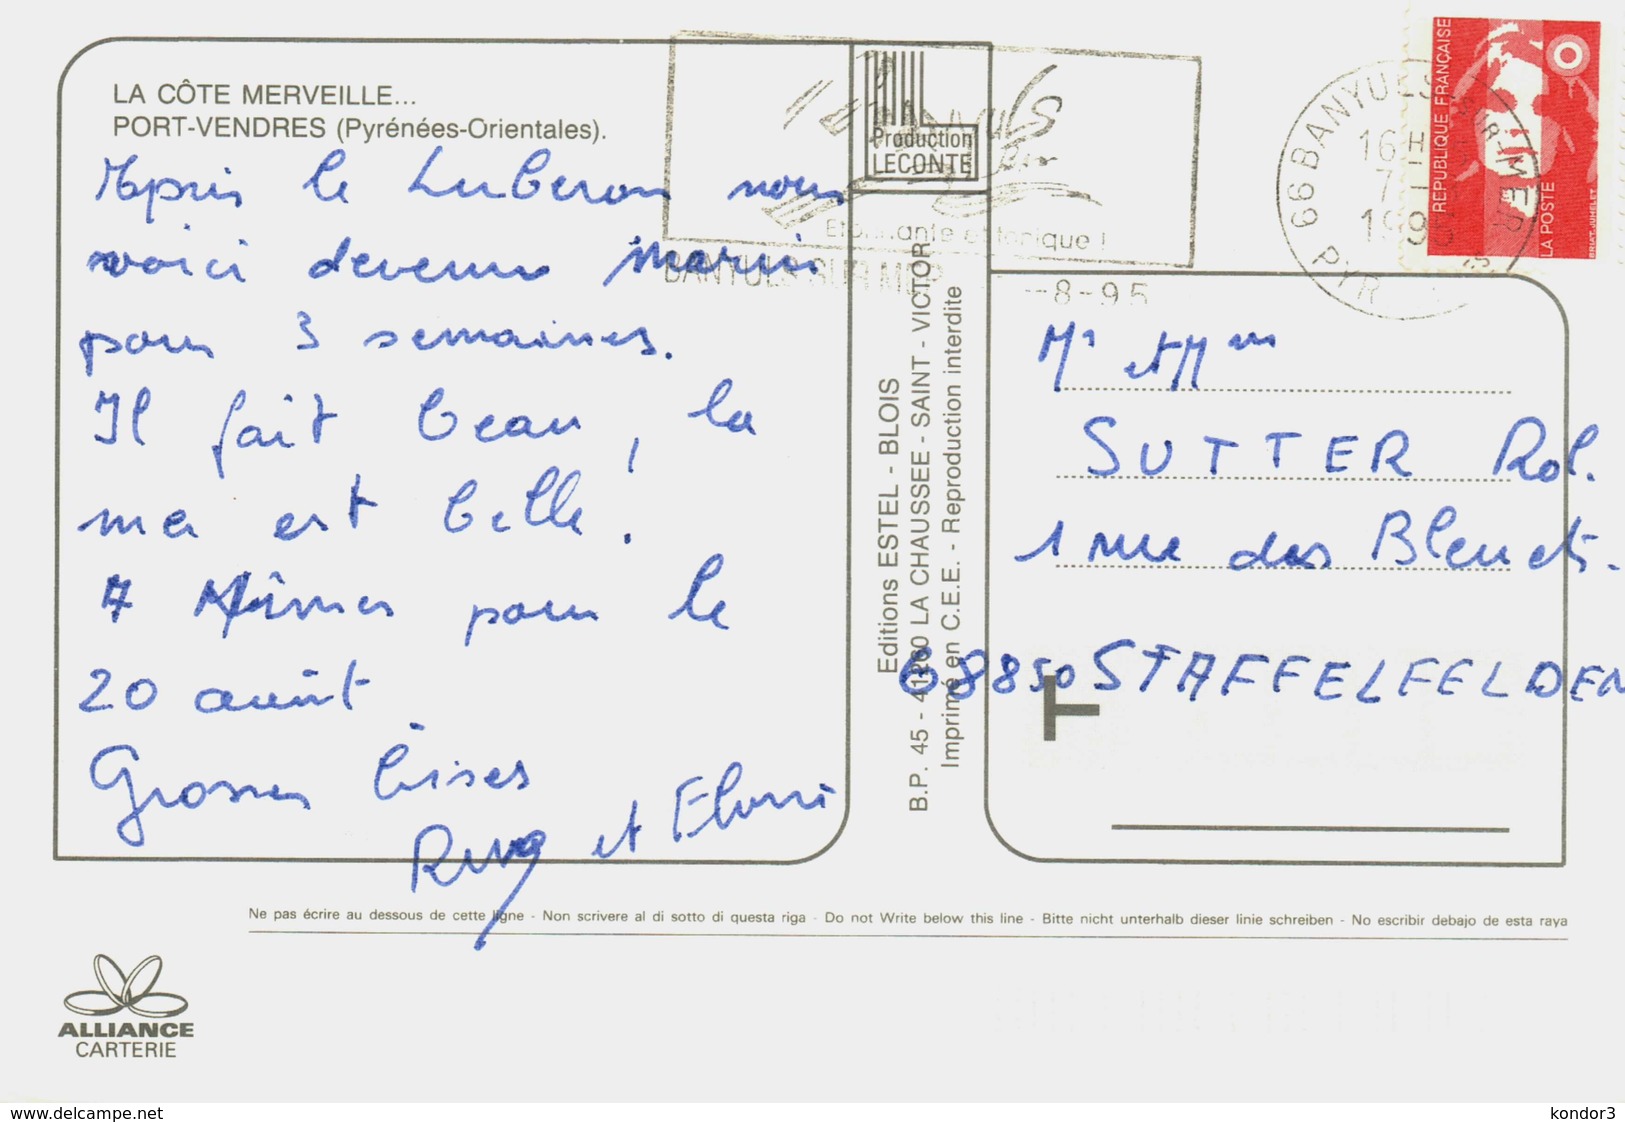 LA CÔTE MERVEILLE...
PORT-VENDRES (Pyrénées-Orientales).
Après le Luberon nous
voici devenus marins
pour 3 semaines.
Il fait beau, la
mer est belle.
A Nîmes pour le
20 août
Grosses bises
et
Production
LECONTE
Etonnante et tonique !
BANYULS SUR MER
-8-95
66 BANYULS-SUR-MER
PYR
16 H
7
1995
REPUBLIQUE FRANÇAISE
LA POSTE
BRIAT. JUMELET
Editions ESTEL - BLOIS
B.P. 45 - 41260 LA CHAUSSEE - SAINT - VICTOR
Imprimé en C.E.E. - Reproduction interdite
Mr et Mme
SUTTER Rol.
1 rue des Bleuets.
68850 STAFFELFELDEN
T
Ne pas écrire au dessous de cette ligne - Non scrivere al di sotto di questa riga - Do not Write below this line - Bitte nicht unterhalb dieser linie schreiben - No escribir debajo de esta raya
ALLIANCE
CARTERIE
www.delcampe.net
kondor3